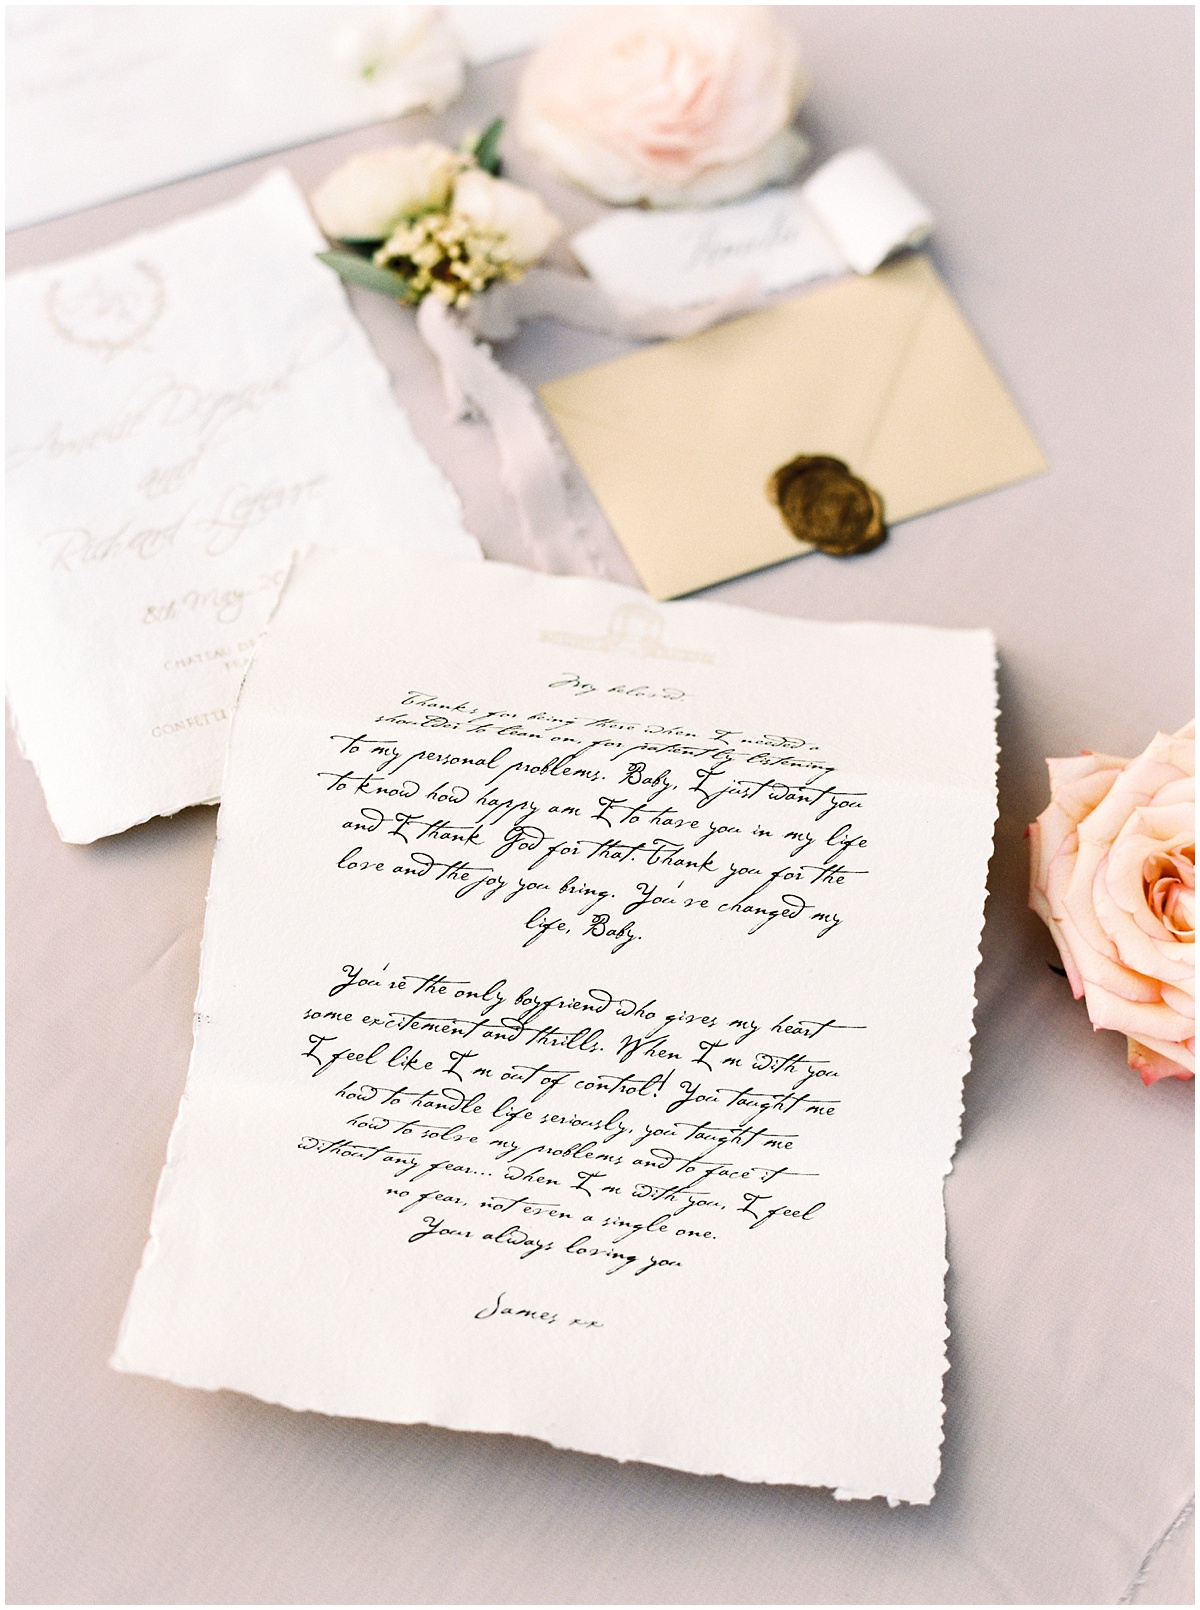 and
Richard Lefevre
8th May
CHATEAU DE
CONFETTI
My beloved,
Thanks for being there when I needed a
shoulder to lean on, for patiently listening
to my personal problems. Baby, I just want you
to know how happy am I to have you in my life
and I thank God for that. Thank you for the
love and the joy you bring. You've changed my
life, Baby.
You're the only boyfriend who gives my heart
some excitement and thrills. When I m with you
I feel like I m out of control! You taught me
how to handle life seriously, you taught me
how to solve my problems and to face it
without any fear... when I m with you, I feel
no fear, not even a single one.
Your always loving you
James xx